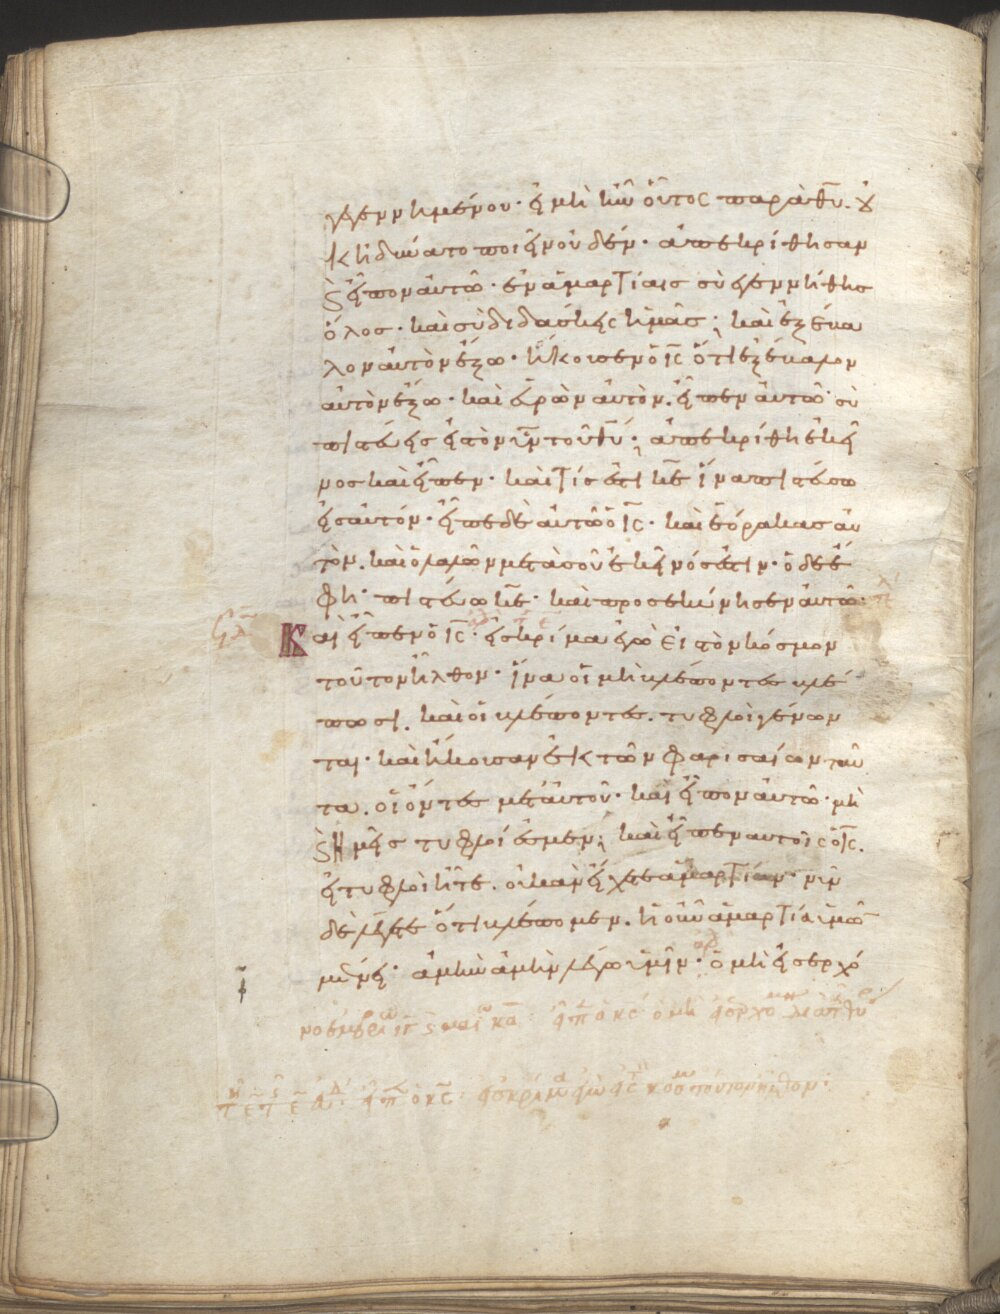 γεγεννημένου· εἰ μὴ ἦν οὗτος παρὰ θυ. οὐ
κ ἠδύνατο ποιεῖν οὐδέν· ἀπεκρίθησαν
καὶ εἶπον αὐτῶ· ἐν ἁμαρτίαις σὺ ἐγεννήθης
ὅλος· καὶ σὺ διδάσκεις ἡμᾶς; καὶ ἐξέβα
λον αὐτὸν ἔξω· ἤκουσεν ὁ ις ὅτι ἐξέβαλον
αὐτὸν ἔξω· καὶ εὑρὼν αὐτὸν. εἶπεν αὐτῶ· σὺ
πιστεύεις εἰς τὸν υν τοῦ θυ; ἀπεκρίθη ἐκεῖ
νος καὶ εἶπεν· καὶ τίς ἐστι κε ἵνα πιστεύσω
εἰς αὐτόν· εἶπε δὲ αὐτῶ ὁ ις· καὶ ἑόρακας αὐ
τὸν. καὶ ὁ λαλῶν μετὰ σοῦ ἐκεῖνός ἐστιν· ὁ δὲ ἔ
φη· πιστεύω κε· καὶ προσεκύνησεν αὐτῶ·
Καὶ εἶπεν ὁ ις· εἰς κρίμα ἐγὼ εἰς τὸν κόσμον
τοῦτον ἦλθον· ἵνα οἱ μὴ βλέποντες βλέ
πωσι. καὶ οἱ βλέποντες. τυφλοὶ γένων
ται· καὶ ἤκουσαν ἐκ τῶν φαρισαίων ταῦ
τα. οἱ ὄντες μετ' αὐτοῦ· καὶ εἶπον αὐτῶ· μὴ
καὶ ἡμεῖς τυφλοί ἐσμεν; καὶ εἶπεν αυτοῖς ὁ ις.
εἰ τυφλοὶ ἦτε. οὐκ ἂν εἴχετε ἁμαρτίαν· νῦν
δὲ λέγετε ὅτι βλέπομεν. ἡ οὖν ἁμαρτία ὑμῶν
μένει· ἀμὴν ἀμὴν λέγω ὑμῖν· ὁ μὴ εἰσερχό